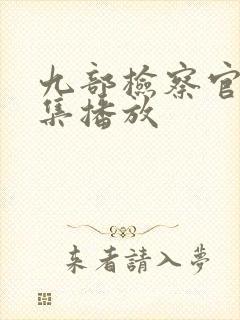 九部檢察官
集播放
來者請入夢